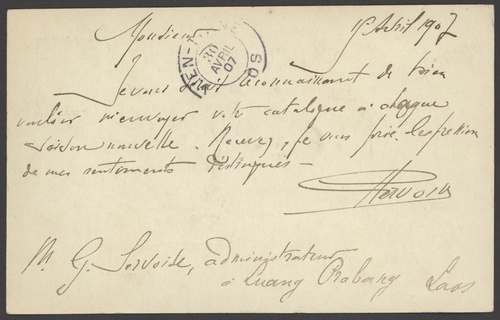 Monsieur 15 Avril 1907
VIEN-TIANE
30
AVRIL
07
LAOS
Je vous serais reconnaissant de bien
vouloir m'envoyer votre catalogue à chaque
saison nouvelle. Recevez, je vous prie l'expression
de mes sentiments distingués -
Servoise
M. G. Servoise, administrateur
à Luang Prabang Laos